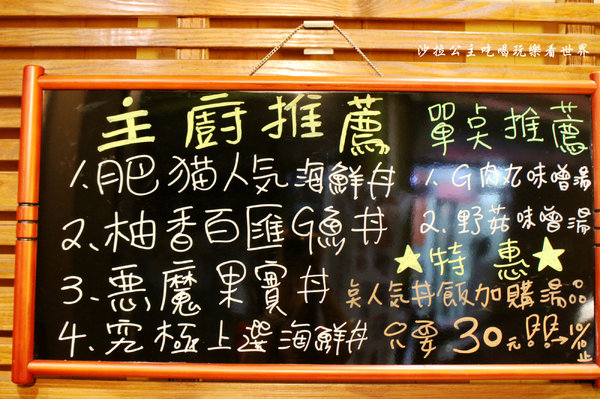 沙拉公主吃喝玩樂看世界
主廚推薦
1、肥猫人気海鮮丼
2、柚香百匯9魚丼
3、惡魔果實丼
4、究極上選海鮮丼
單点推薦
1、G肉丸味噌湯
2、野菇味噌湯
★特惠★
点人気丼飯加購湯品
只要30元!!→10/10止